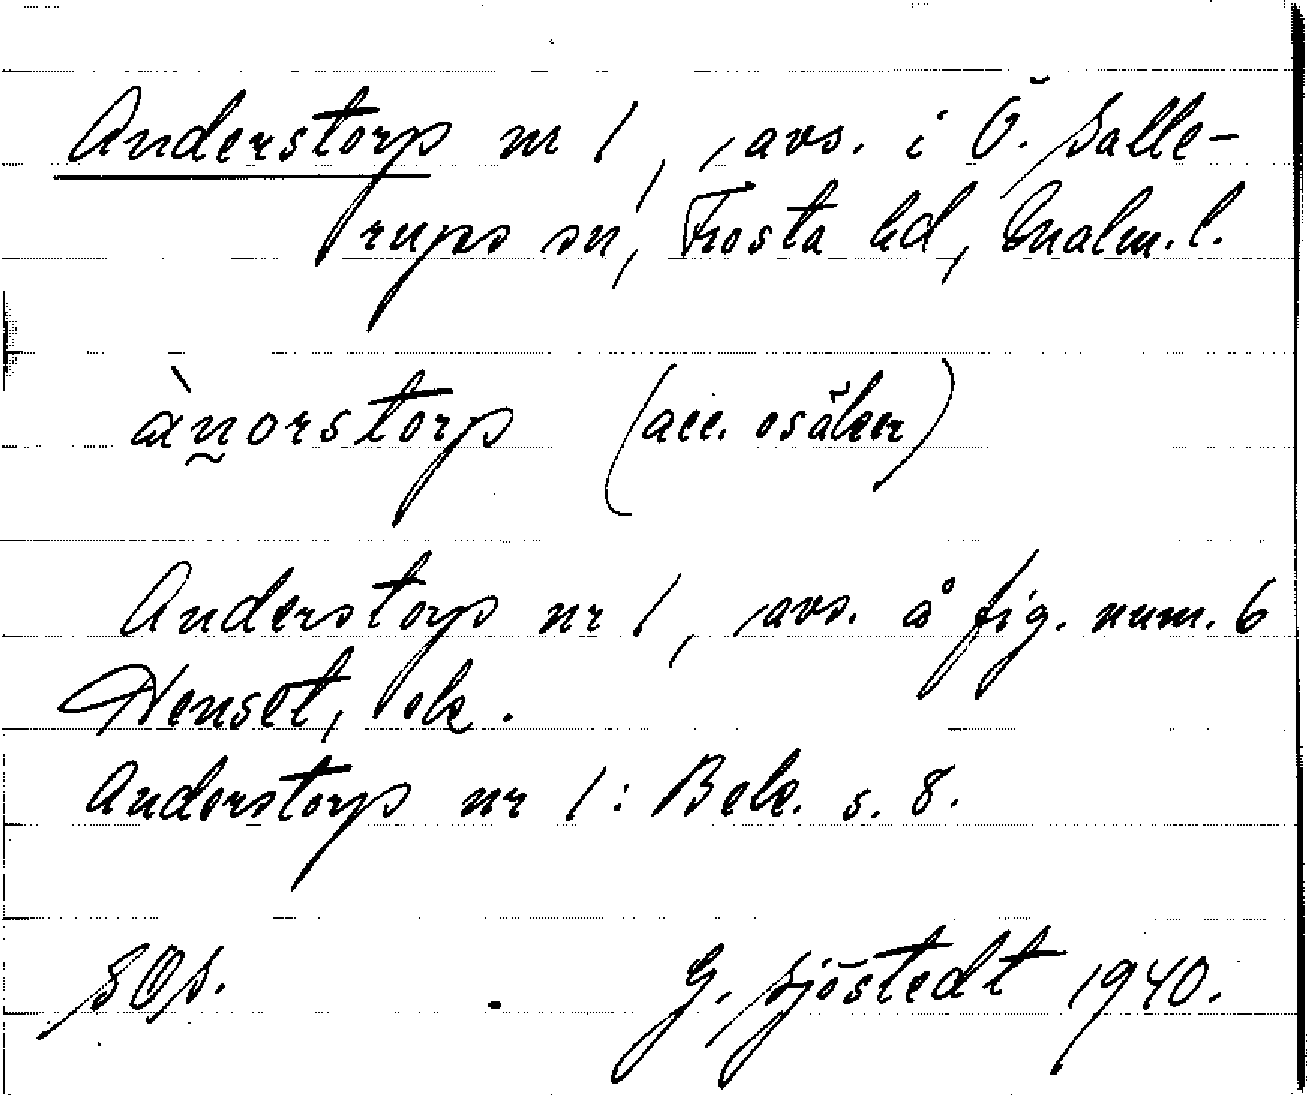 Anderstorp nr 1, avs. i Ö. Salle-
rups sn, Frosta hd, Malm. l.
àn̰orstorp (acc. osäker)
Anderstorp nr 1, avs. å fig. num. 6
Henset, ek.
Anderstorp nr 1: Bek. s. 8.
SOS.
G. Sjöstedt 1940.